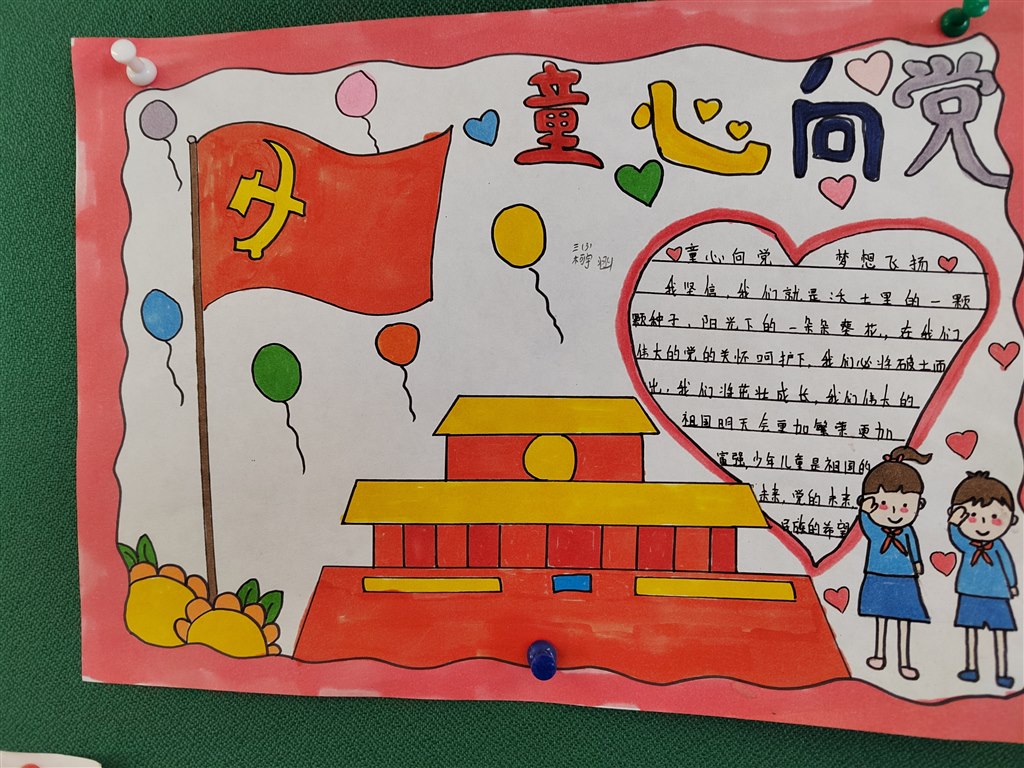 童心向党
三(3)
童心向党 梦想飞扬
我坚信，我们就是沃土里的一颗
颗种子，阳光下的一朵朵葵花，在我们
伟大的党的关怀呵护下，我们必将破土而
出，我们将茁壮成长，我们伟大的
祖国明天会更加繁荣更加
富强，少年儿童是祖国的
未来，党的未来
民族的希望